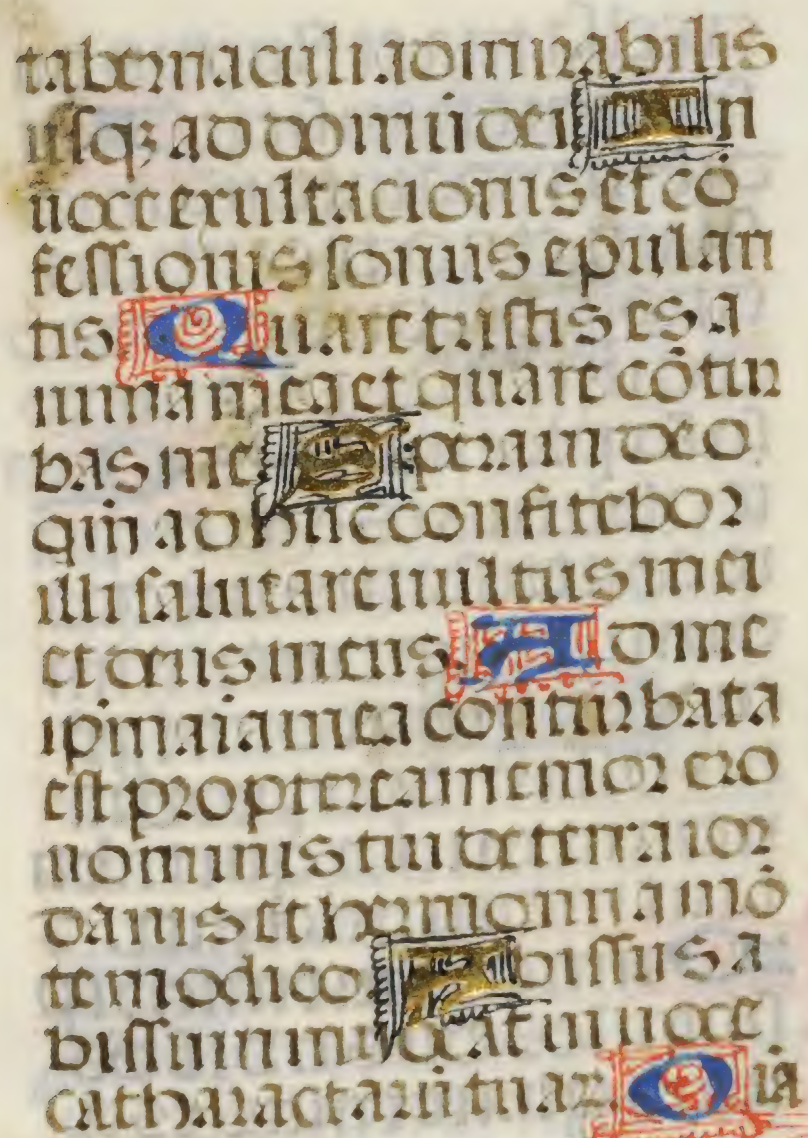 tabernaculi admirabilis
ussq; ad domū dei In
uoce exultacionis et cō
fessionis sonus epulan
tis Quare tristis es a
nima mea et quare cōtur
bas me Spera in deo
qm̄ ad huc confitebor
illi salutare uultus mei
et deus meus Ad me
ip̄m aīa mea conturbata
est propterea memor ero
nominis tui de terra ior
danis et hermonii a mō
te modico Abissus a
bissum inuocat in uoce
catharactarū tuar. Oīa